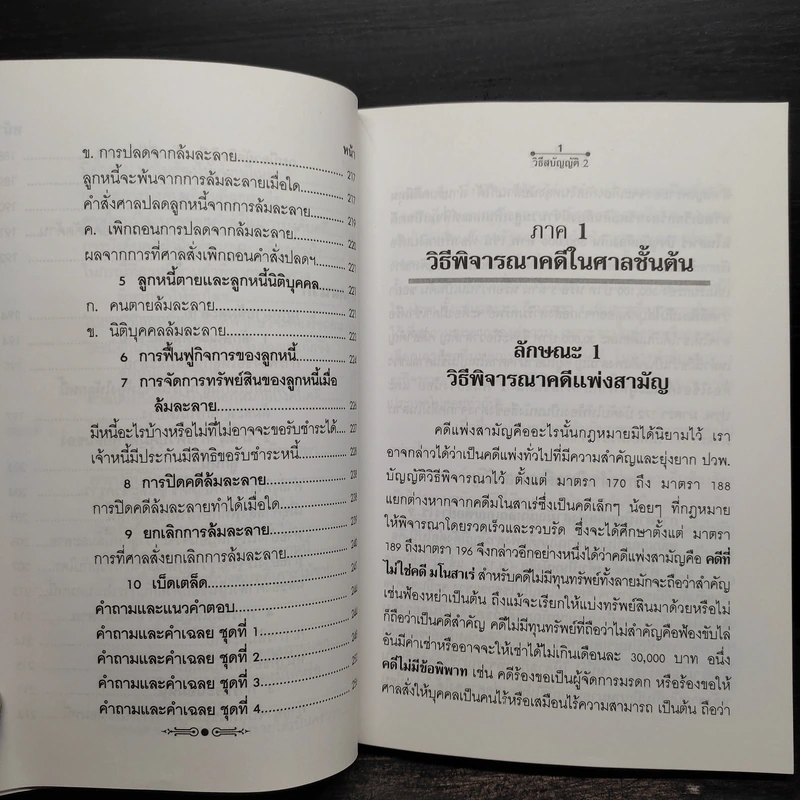 หน้า
ข. การปลดจากล้มละลาย 217
ลูกหนี้จะพ้นจากการล้มละลายเมื่อใด 217
คำสั่งศาลปลดลูกหนี้จากการล้มละลาย 219
ค. เพิกถอนการปลดจากล้มละลาย 220
ผลจากการที่ศาลสั่งเพิกถอนคำสั่งปลดฯ 221
5 ลูกหนี้ตายและลูกหนี้นิติบุคคล 221
ก. คนตายล้มละลาย 221
ข. นิติบุคคลล้มละลาย 223
6 การฟื้นฟูกิจการของลูกหนี้ 224
7 การจัดการทรัพย์สินของลูกหนี้เมื่อ
ล้มละลาย 226
มีหนี้อะไรบ้างหรือไม่ที่ไม่อาจจะขอรับชำระได้ 227
เจ้าหนี้มีประกันมีสิทธิขอรับชำระหนี้
8 การปิดคดีล้มละลาย
การปิดคดีล้มละลายทำได้เมื่อใด
9 ยกเลิกการล้มละลาย
การที่ศาลสั่งยกเลิกการล้มละลาย
10 เบ็ดเตล็ด
คำถามและแนวคำตอบ
คำถามและคำเฉลย ชุดที่ 1
คำถามและคำเฉลย ชุดที่ 2
คำถามและคำเฉลย ชุดที่ 3
คำถามและคำเฉลย ชุดที่ 4
1
วิธีสบัญญัติ 2
ภาค 1
วิธีพิจารณาคดีในศาลชั้นต้น
ลักษณะ 1
วิธีพิจารณาคดีแพ่งสามัญ
คดีแพ่งสามัญคืออะไรนั้นกฎหมายมิได้นิยามไว้ เรา
อาจกล่าวได้ว่าเป็นคดีแพ่งทั่วไปที่มีความสำคัญและยุ่งยาก ปวพ.
บัญญัติวิธีพิจารณาไว้ ตั้งแต่ มาตรา 170 ถึง มาตรา 188
แยกต่างหากจากคดีมโนสาเร่ซึ่งเป็นคดีเล็กๆ น้อยๆ ที่กฎหมาย
ให้พิจารณาโดยรวดเร็วและรวบรัด ซึ่งจะได้ศึกษาตั้งแต่ มาตรา
189 ถึงมาตรา 196 จึงกล่าวอีกอย่างหนึ่งได้ว่าคดีแพ่งสามัญคือ คดีที่
ไม่ใช่คดี มโนสาเร่ สำหรับคดีไม่มีทุนทรัพย์ทั้งลายมักจะถือว่าสำคัญ
เช่นฟ้องหย่าเป็นต้น ถึงแม้จะเรียกให้แบ่งทรัพย์สินมาด้วยหรือไม่
ก็ถือว่าเป็นคดีสำคัญ คดีไม่มีทุนทรัพย์ที่ถือว่าไม่สำคัญคือฟ้องขับไล่
อันมีค่าเช่าหรืออาจจะให้เช่าได้ไม่เกินเดือนละ 30,000 บาท อนึ่ง
คดีไม่มีข้อพิพาท เช่น คดีร้องขอเป็นผู้จัดการมรดก หรือร้องขอให้
ศาลสั่งให้บุคคลเป็นคนไร้หรือเสมือนไร้ความสามารถ เป็นต้น ถือว่า